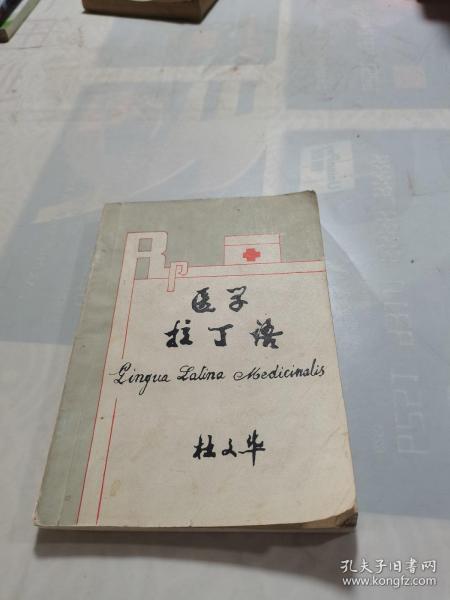 Rp
医学
拉丁语
Lingua Latina Medicinalis
杜文华
孔夫子旧书网
www.kongfz.com